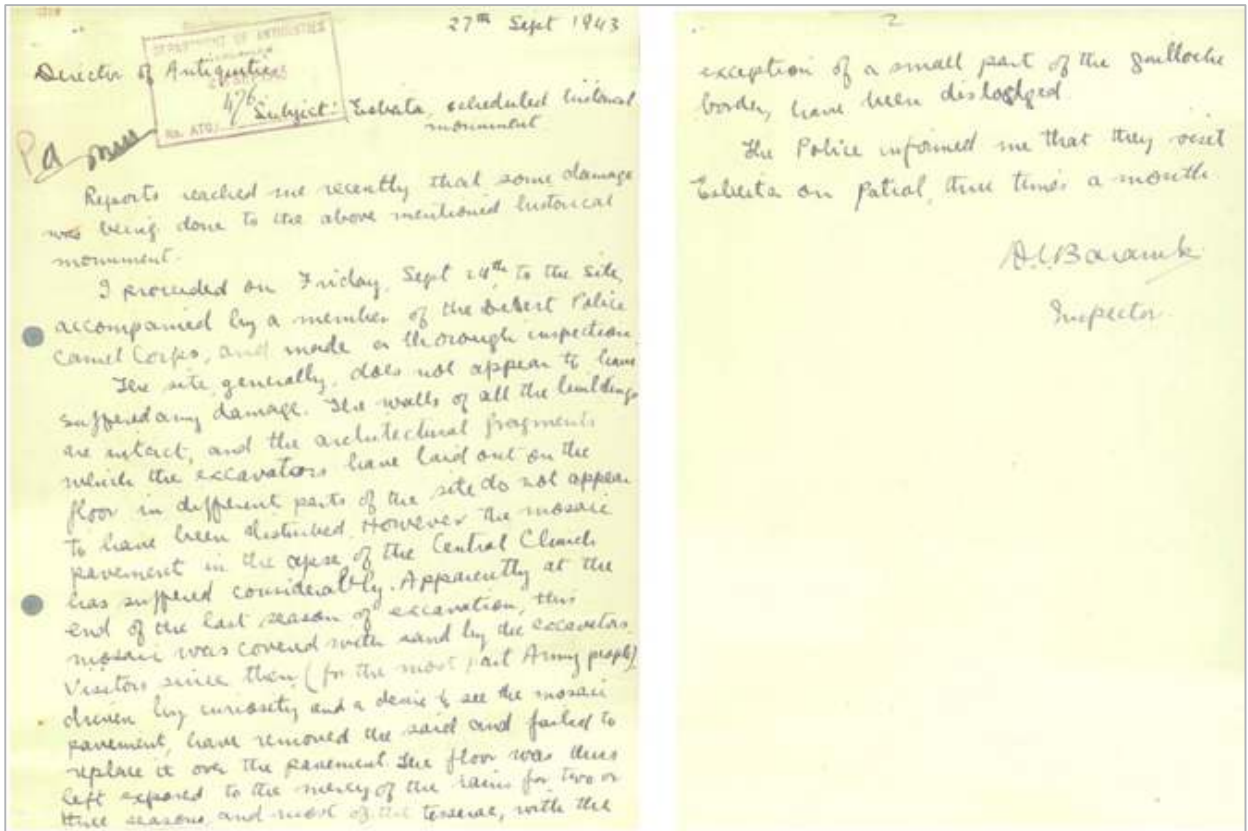 27th Sept 1943
DEPARTMENT OF ANTIQUITIES
Director of Antiquities
476
No. ATQ/
Subject: Esbeita, scheduled historical
monument
Reports reached me recently that some damage
was being done to the above mentioned historical
monument.
I proceeded on Friday, Sept 24th to the site,
accompanied by a member of the Desert Police
Camel Corps, and made a thorough inspection.
The site, generally, does not appear to have
suffered any damage. The walls of all the buildings
are intact, and the architectural fragments
which the excavators have laid out on the
floor in different parts of the site do not appear
to have been disturbed. However the mosaic
pavement in the apse of the Central Church
has suffered considerably. Apparently at the
end of the last season of excavation, this
mosaic was covered with sand by the excavators.
Visitors since then (for the most part Army people)
driven by curiosity and a desire to see the mosaic
pavement, have removed the said and failed to
replace it over the pavement. The floor was thus
left exposed to the mercy of the rains for two or
three seasons, and most of the tesserae, with the
2
exception of a small part of the guilloche
border, have been dislodged.
The Police informed me that they visit
Esbeita on Patrol, three times a month.
D.C. Baramki
Inspector.